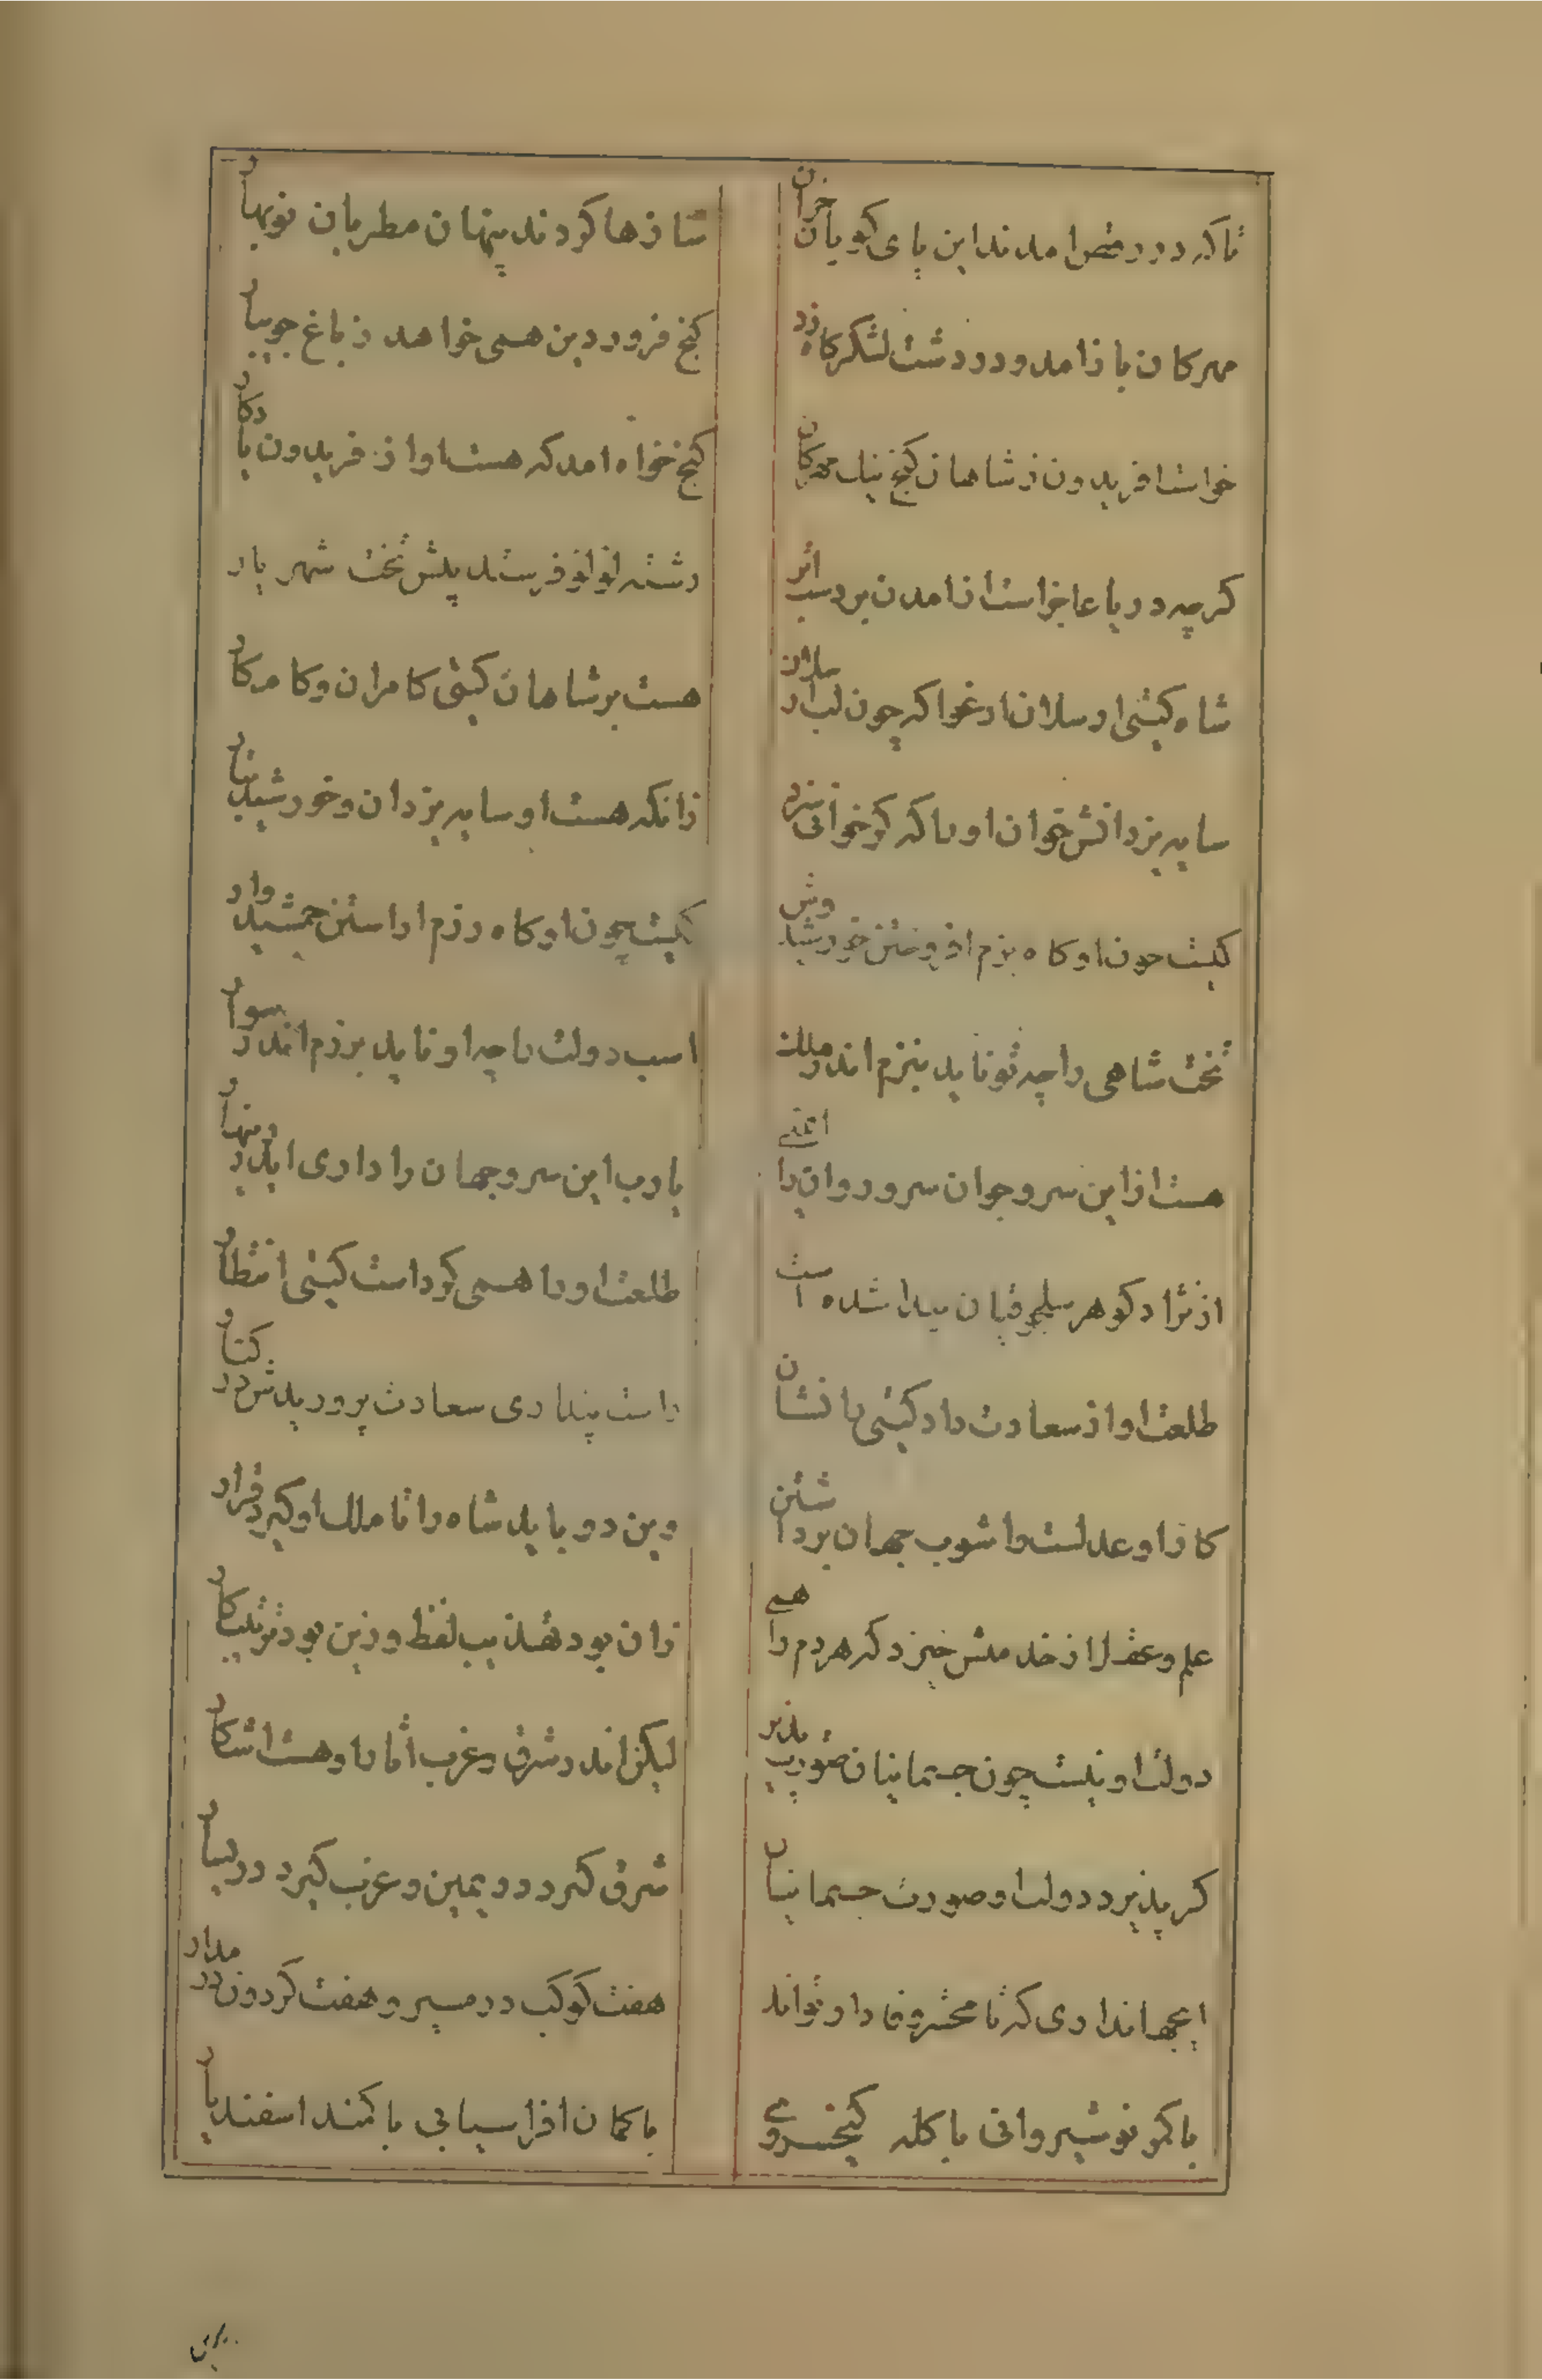 تا که در رقص امدند این پای کوبان خزان
شاذها کردند پنهان مطربان نوبهار
مهرکان باز امد و در دشت لشکرکاه زد
کنج فروردین همی خواهد ز باغ جویبار
خواست افریدون ز شاهان کنج نیک مهرکان
کنج خواه امد که هست او از فریدون یادکار
کرچه دریا عاجز است از امدن بر دست ابر
رشته لولو فرستد پیش تخت شهریار
شاه کیتی ارسلان ارغو اکه چون الب ارسلان
هست بر شاهان کیتی کامران و کامکار
سایه یزدانش خوان او را که کر خوانی سزد
زانکه هست او سایه یزدان و خورشید تبار
کیست چون او کاه بزم افروختن خورشید وش
کیست چون او کاه رزم اراستن جمشید وار
تخت شاهی را چه تو ناید ببزم اندر ملک
اسب دولت را چه او ناید برزم اندر سوار
هست از این سرو جوان سرو روان را ایمنی
یارب این سرو جهان را داری اندر زینهار
از نژاد کوهر سلجوقیان پیدا شده است
طلعت او را همی کرداست کیتی انتظار
طلعت او از سعادت داد کیتی را نشان
راست پنداری سعادت پروریدش در کنار
کار او عدلست و اشوب جهان برداشتن
وین دو باید شاه را تا ملک او کیرد قرار
علم و عقل از خدمتش خیزد که هر دم را همی
زان بود تهذیب لفظ و زین بود ترتیب کار
دولت او نیست چون جسمانیان صورت پذیر
لیکن اندر شرق و غرب اثار او هست اشکار
کر پذیرد دولت او صورت جسمانیان
شرق کیرد در یمین و غرب کیرد در یسار
ای جهانداری که تا محشر وفادار تواند
هفت کوکب در مسیر و هفت کردون در مدار
با کمر نوشیروانی با کله کیخسروی
با کمان افراسیابی با کمند اسفندیار